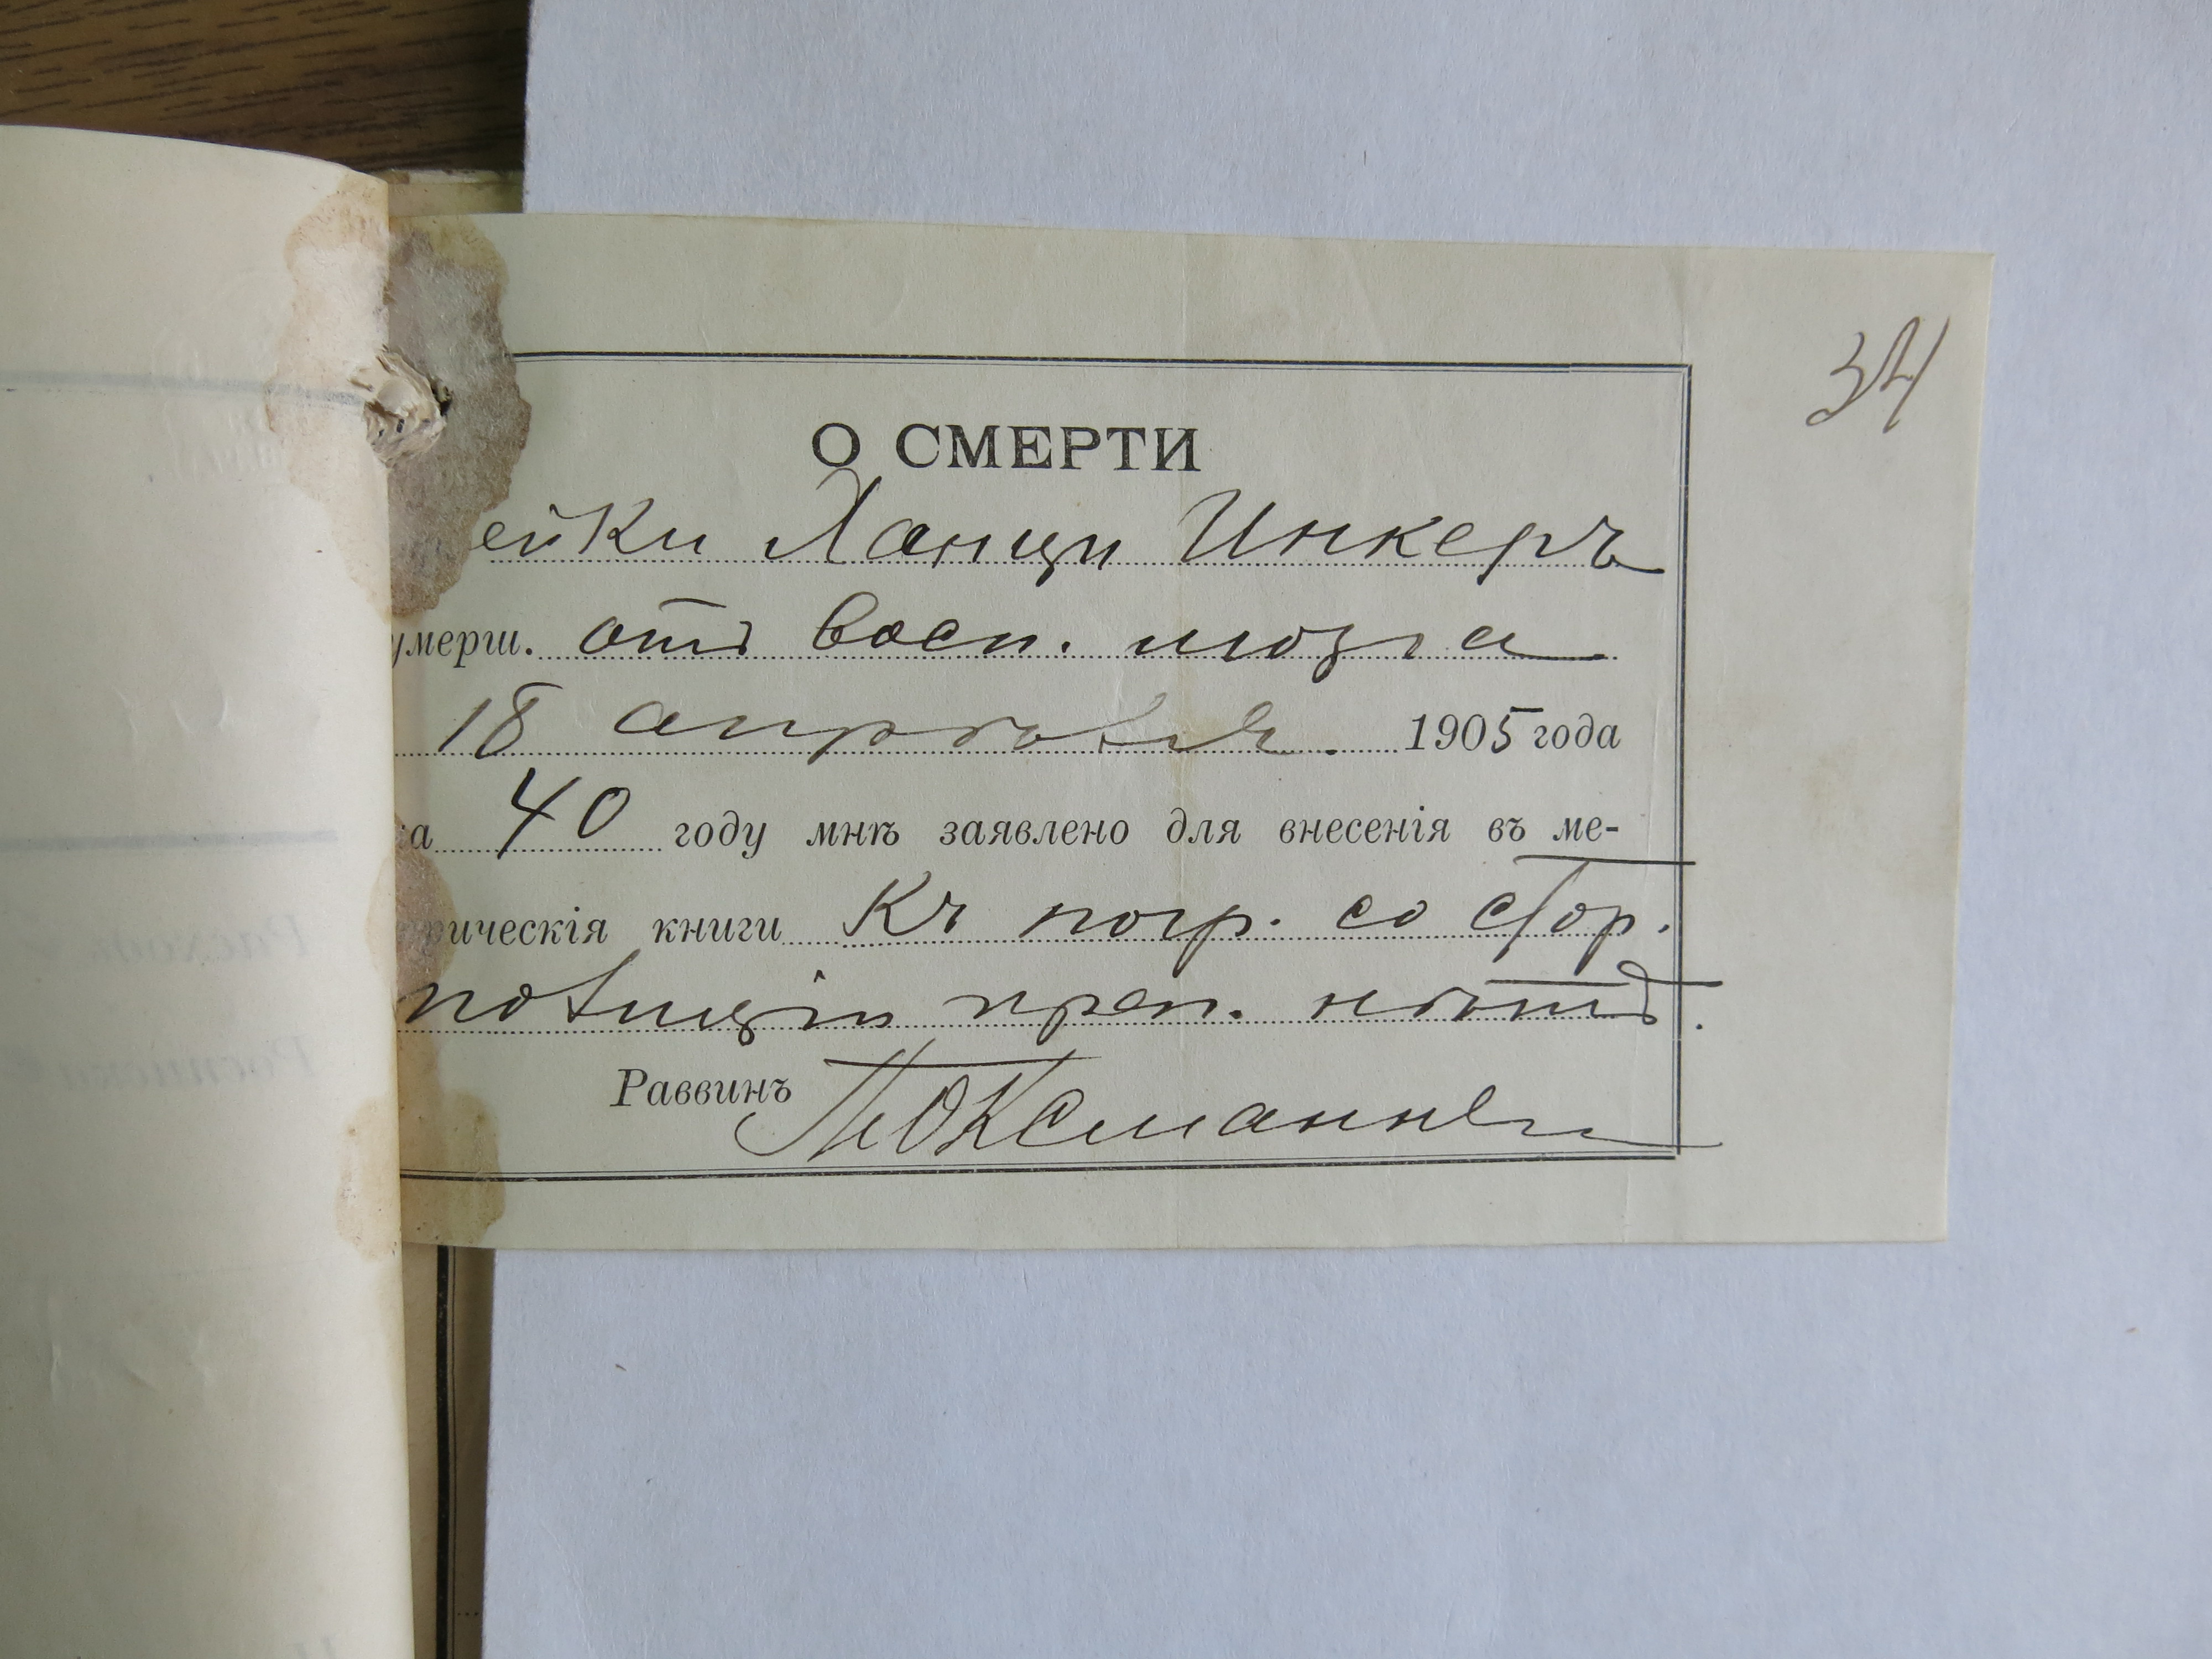 34
О СМЕРТИ
ейки Ханци Инкеръ
умерш. отъ восп. мозга
18 апрѣля. 1905 года
на 40 году мнѣ заявлено для внесенія въ ме-
рическія книги Къ погр. со стор.
полиціи преп. нѣтъ.
Раввинъ